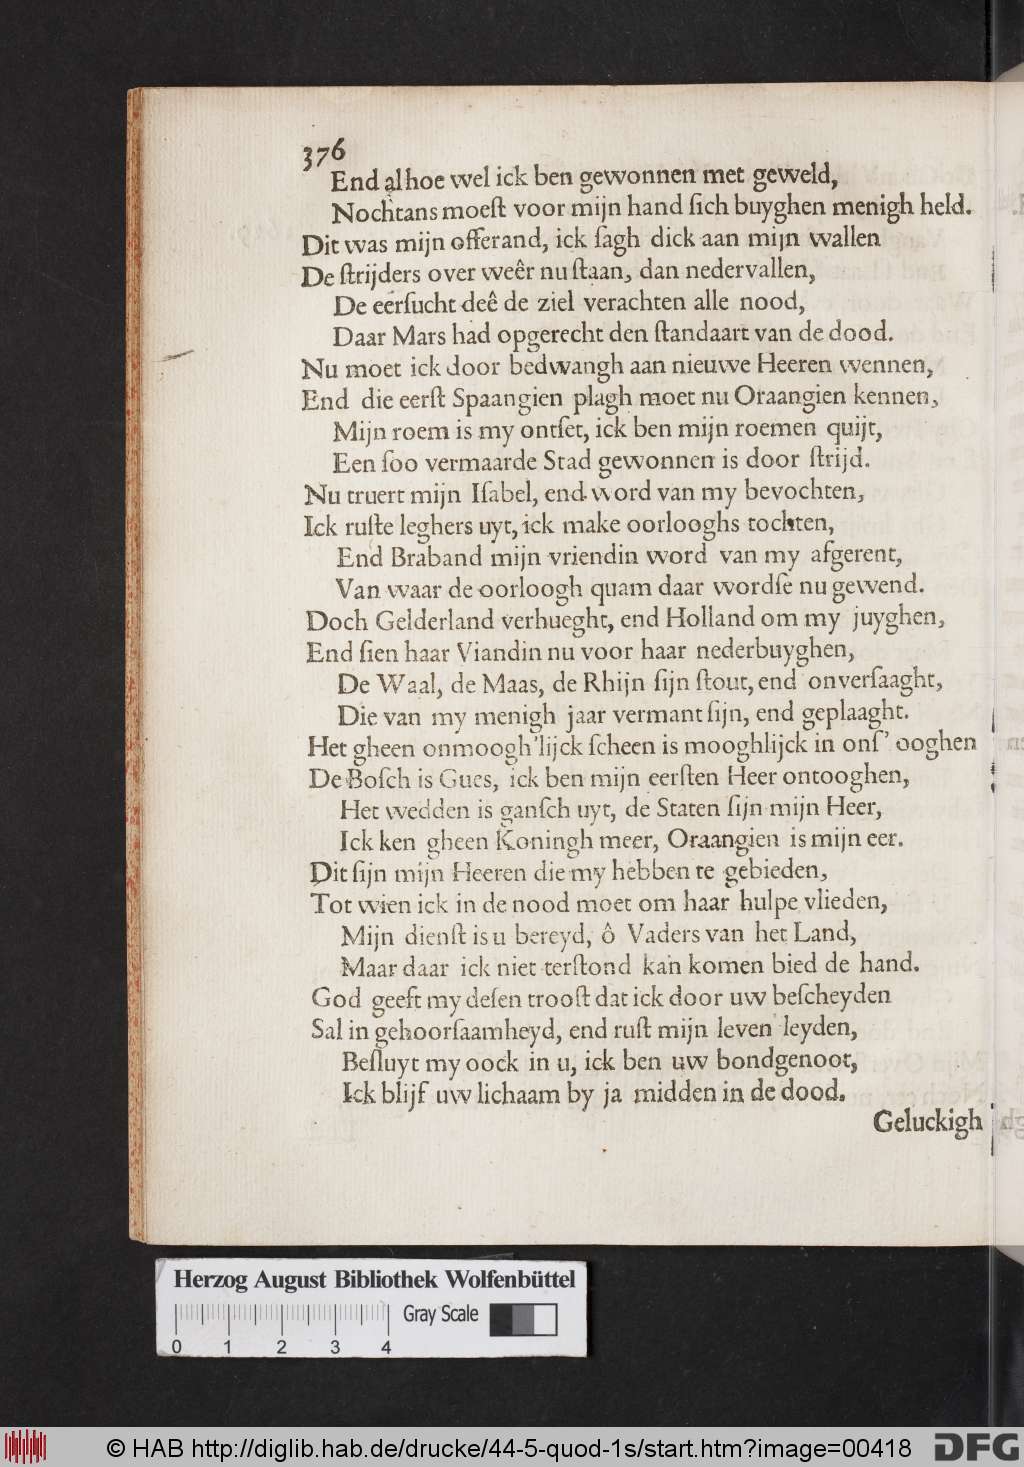 376
End alhoe wel ick ben gewonnen met geweld,
Nochtans moeſt voor mijn hand ſich buyghen menigh held.
Dit was mijn offerand, ick ſagh dick aan mijn wallen
De ſtrijders over weêr nu ſtaan, dan nedervallen,
De eerſucht deê de ziel verachten alle nood,
Daar Mars had opgerecht den ſtandaart van de dood.
Nu moet ick door bedwangh aan nieuwe Heeren wennen,
End die eerſt Spaangien plagh moet nu Oraangien kennen,
Mijn roem is my ontſet, ick ben mijn roemen quijt,
Een ſoo vermaarde Stad gewonnen is door ſtrijd.
Nu truert mijn Iſabel, end word van my bevochten,
Ick ruſte leghers uyt, ick make oorlooghs tochten,
End Braband mijn vriendin word van my afgerent,
Van waar de oorloogh quam daar wordſe nu gewend.
Doch Gelderland verhueght, end Holland om my juyghen,
End ſien haar Viandin nu voor haar nederbuyghen,
De Waal, de Maas, de Rhijn ſijn ſtout, end onverſaaght,
Die van my menigh jaar vermant ſijn, end geplaaght.
Het gheen onmoogh'lijck ſcheen is mooghlijck in onſ' ooghen
De Boſch is Gues, ick ben mijn eerſten Heer ontooghen,
Het wedden is ganſch uyt, de Staten ſijn mijn Heer,
Ick ken gheen Koningh meer, Oraangien is mijn eer.
Dit ſijn mijn Heeren die my hebben te gebieden,
Tot wien ick in de nood moet om haar hulpe vlieden,
Mijn dienſt is u bereyd, ô Vaders van het Land,
Maar daar ick niet terſtond kan komen bied de hand.
God geeft my deſen trooſt dat ick door uw beſcheyden
Sal in gehoorſaamheyd, end ruſt mijn leven leyden,
Beſluyt my oock in u, ick ben uw bondgenoot,
Ick blijf uw lichaam by ja midden in de dood.
Geluckigh
Herzog August Bibliothek Wolfenbüttel
Gray Scale
0 1 2 3 4
© HAB http://diglib.hab.de/drucke/44-5-quod-1s/start.htm?image=00418
DFG